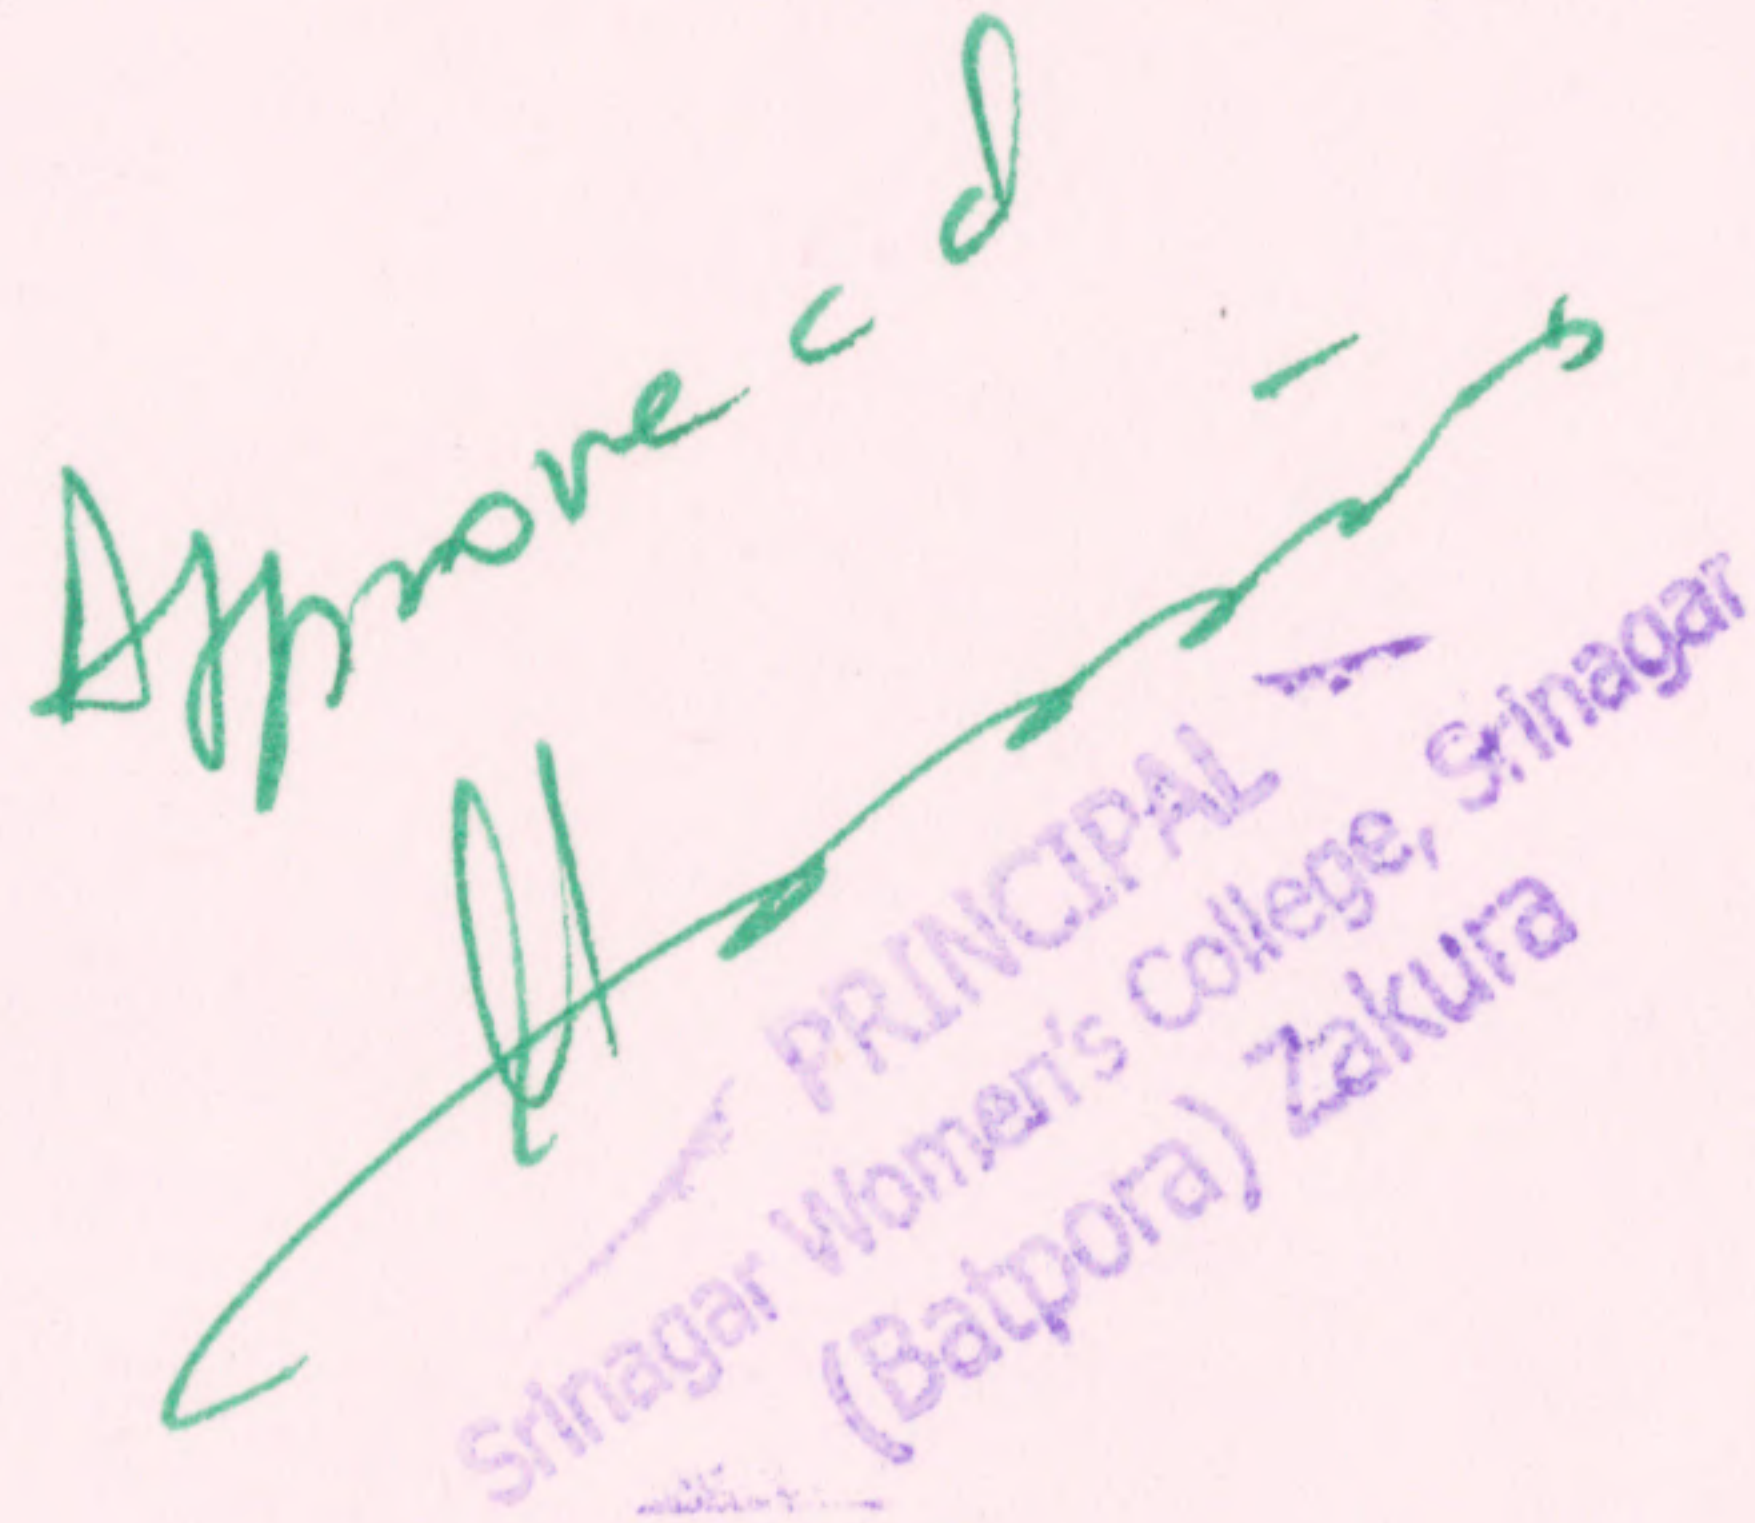 Approved
PRINCIPAL
Srinagar Women's College, Srinagar
(Batpora) Zakura